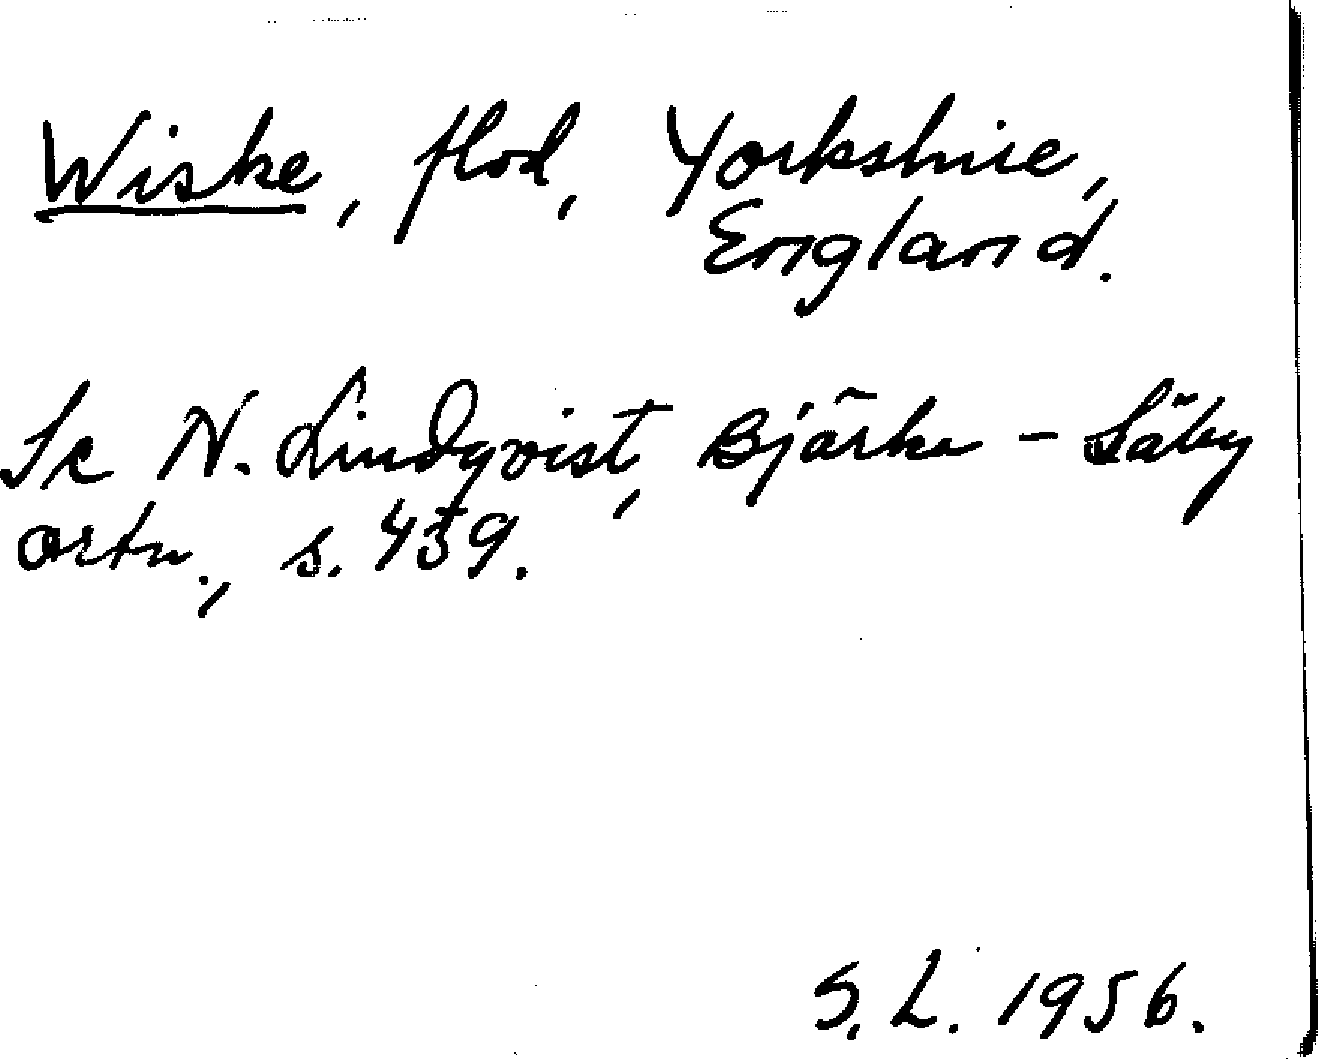 Wiske, flod, Yorkshire,
England.
Se N. Lindqvist, Bjärka - Säby
ortn., s. 439.
S. L. 1956.